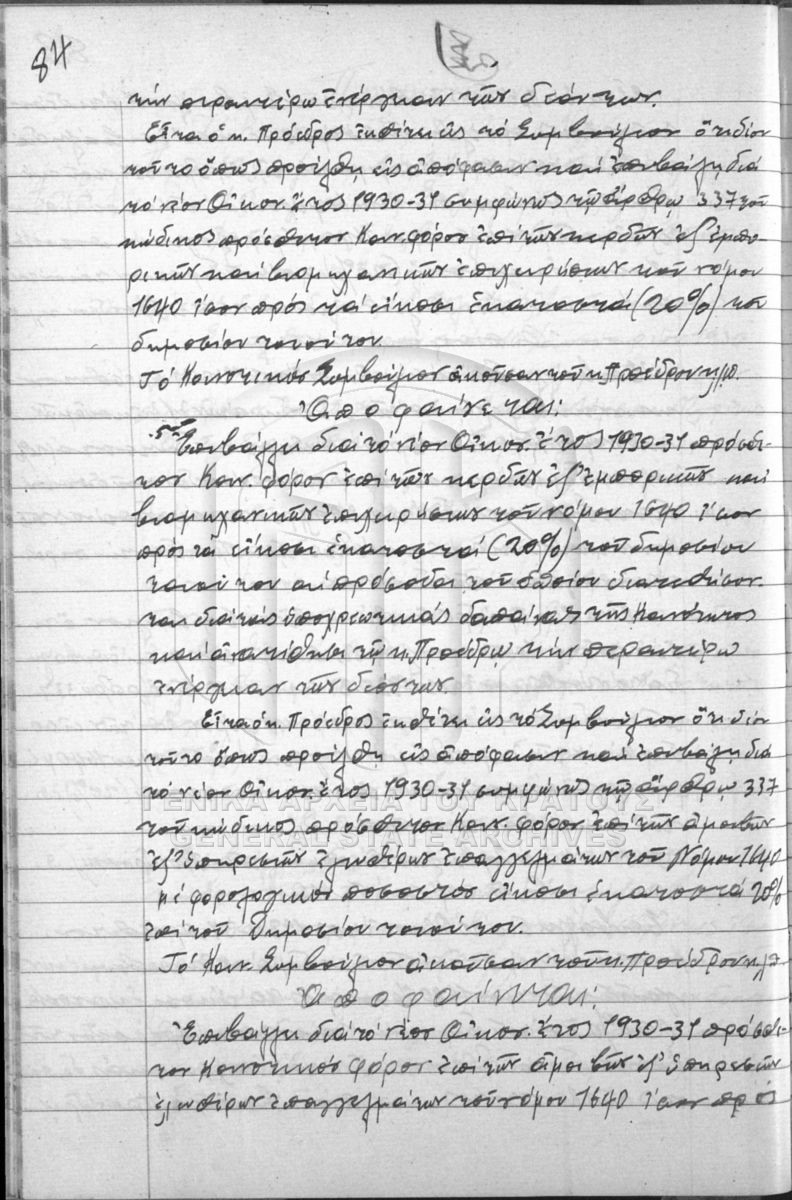 84
τήν περαιτέρω ἐνέργειαν τῶν δεόντων.
Εἶτα ὁ κ. Πρόεδρος ἐκθέτει εἰς τό Συμβούλιον ὅτι δέον
τοῦτο ὅπως προέλθῃ εἰς ἀπόφασιν καί ἐπιβάλῃ διά
τό νέον Οἰκον. ἔτος 1930-31 συμφώνως τῷ ἄρθρῳ 337 τοῦ
κώδικος πρόσθετον Κοιν. φόρον ἐπί τῶν κερδῶν ἐξ ἐμπο-
ρικῶν καί βιομηχανικῶν ἐπιχειρήσεων τοῦ νόμου
1640 ἴσον πρός τά εἴκοσι ἑκατοστά (20%) τοῦ
δημοσίου τοιούτου.
Τό Κοινοτικόν Συμβούλιον ἀκοῦσαν τοῦ κ. Προέδρου κ.λ.π.
Ἀποφαίνεται:
Ἐπιβάλλει διά τό νέον Οἰκον. ἔτος 1930-31 πρόσθε-
τον Κοιν. φόρον ἐπί τῶν κερδῶν ἐξ ἐμπορικῶν καί
βιομηχανικῶν ἐπιχειρήσεων τοῦ νόμου 1640 ἴσον
πρός τά εἴκοσι ἑκατοστά (20%) τοῦ δημοσίου
τοιούτου αἱ πρόσοδοι τοῦ ὁποίου διατεθήσον-
ται διά τάς ὑποχρεωτικάς δαπάνας τῆς Κοινότητος
καί ἀνατίθησι τῷ κ. Προέδρῳ τήν περαιτέρω
ἐνέργειαν τῶν δεόντων.
Εἶτα ὁ κ. Πρόεδρος ἐκθέτει εἰς τό Συμβούλιον ὅτι δέον
τοῦτο ὅπως προέλθῃ εἰς ἀπόφασιν καί ἐπιβάλῃ διά
τό νέον Οἰκον. ἔτος 1930-31 συμφώνως τῷ ἄρθρῳ 337
τοῦ κώδικος πρόσθετον Κοιν. φόρον ἐπί τῶν ἀμοιβῶν
ἐξ ὑπηρεσιῶν ἐλευθέρων ἐπαγγελμάτων τοῦ Νόμου 1640
μέ φορολογικόν ποσοστόν εἴκοσι ἑκατοστά 20%
ἐπί τοῦ δημοσίου τοιούτου.
Τό Κοιν. Συμβούλιον ἀκοῦσαν τοῦ κ. Προέδρου κ.λ.π.
Ἀποφαίνεται:
Ἐπιβάλλει διά τό νέον Οἰκον. ἔτος 1930-31 πρόσθε-
τον Κοινοτικόν φόρον ἐπί τῶν ἀμοιβῶν ἐξ ὑπηρεσιῶν
ἐλευθέρων ἐπαγγελμάτων τοῦ νόμου 1640 ἴσον πρός
ΓΕΝΙΚΑ ΑΡΧΕΙΑ ΤΟΥ ΚΡΑΤΟΥΣ
GENERAL STATE ARCHIVES